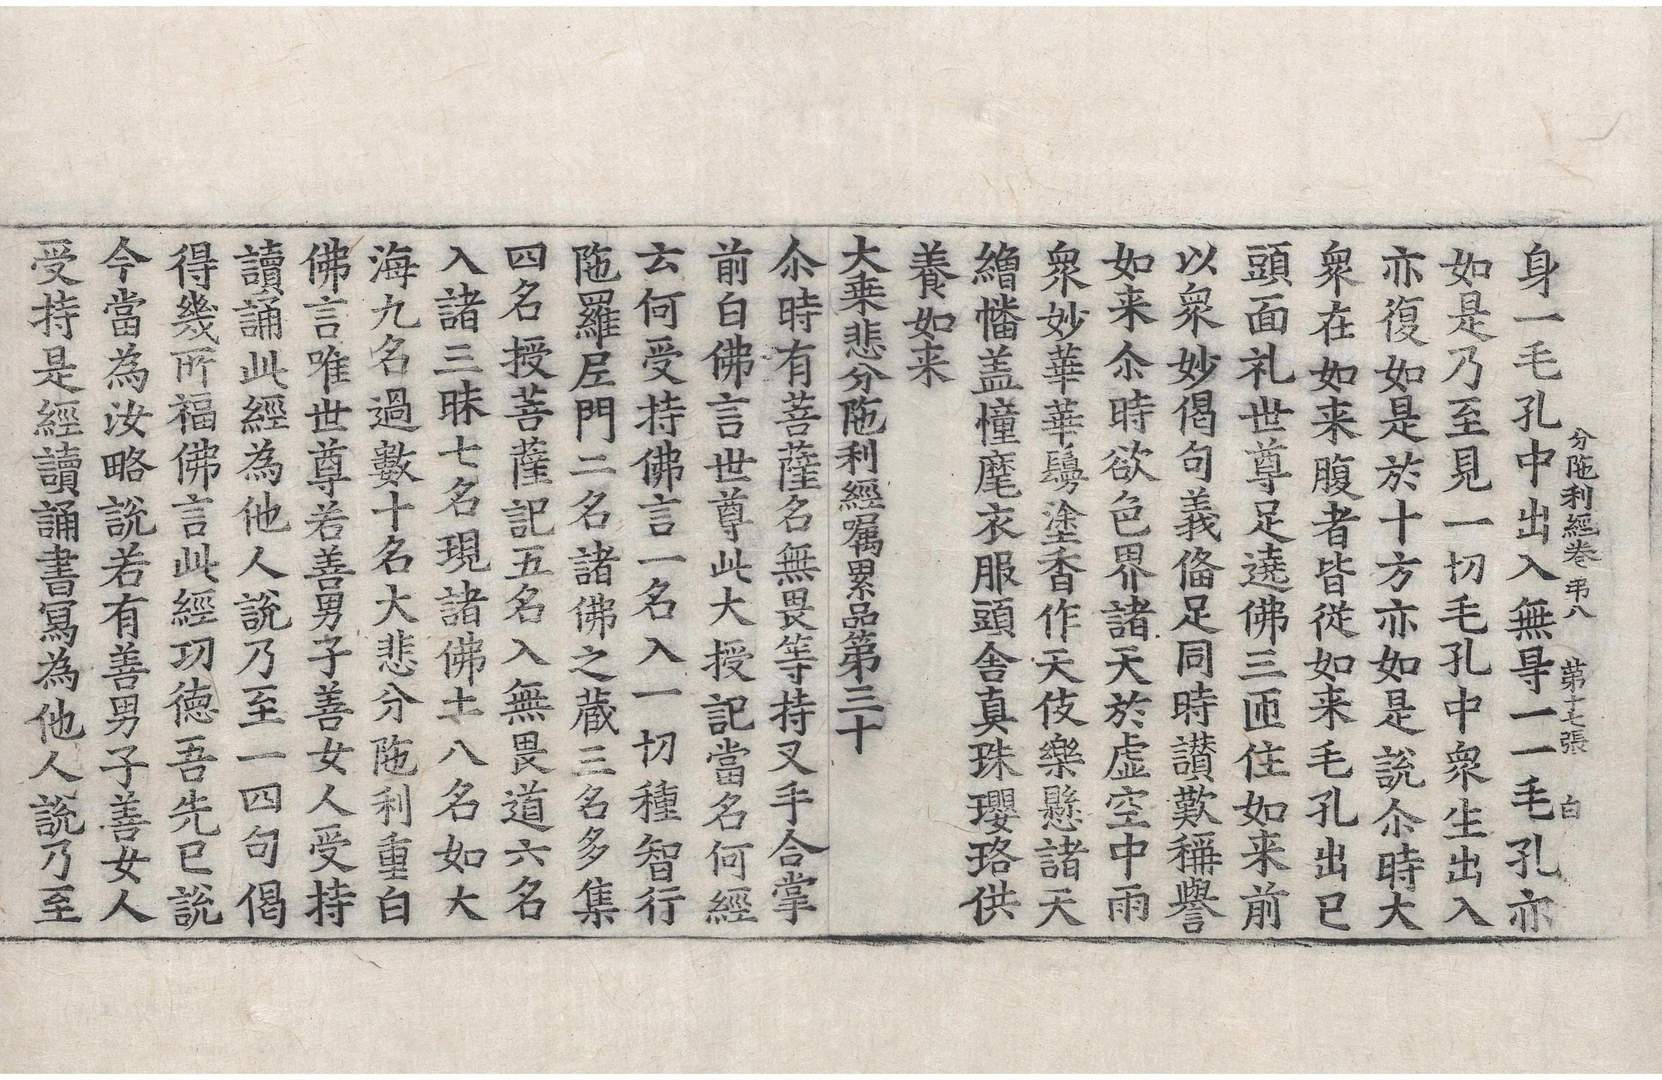 分陁利經卷 苐八 第十七張 白
身一毛孔中出入無㝵一一毛孔亦
如是乃至見一切毛孔中衆生出入
亦復如是於十方亦如是說尒時大
衆在如来腹者皆從如来毛孔出已
頭面礼世尊足遶佛三匝住如来前
以衆妙偈句義俻足同時讃歎稱譽
如来尒時欲色界諸天於虛空中雨
衆妙華華鬘塗香作天伎樂懸諸天
繒幡盖幢麾衣服頭舍真珠瓔珞供
養如来
大乗悲分陁利經嘱累品第三十
尒時有菩薩名無畏等持叉手合掌
前白佛言世尊此大授記當名何經
云何受持佛言一名入一切種智行
陁羅尼門二名諸佛之蔵三名多集
四名授菩薩記五名入無畏道六名
入諸三昧七名現諸佛土八名如大
海九名過數十名大悲分陁利重白
佛言唯世尊若善男子善女人受持
讀誦此經為他人說乃至一四句偈
得幾所福佛言此經功德吾先已說
今當為汝略說若有善男子善女人
受持是經讀誦書寫為他人說乃至